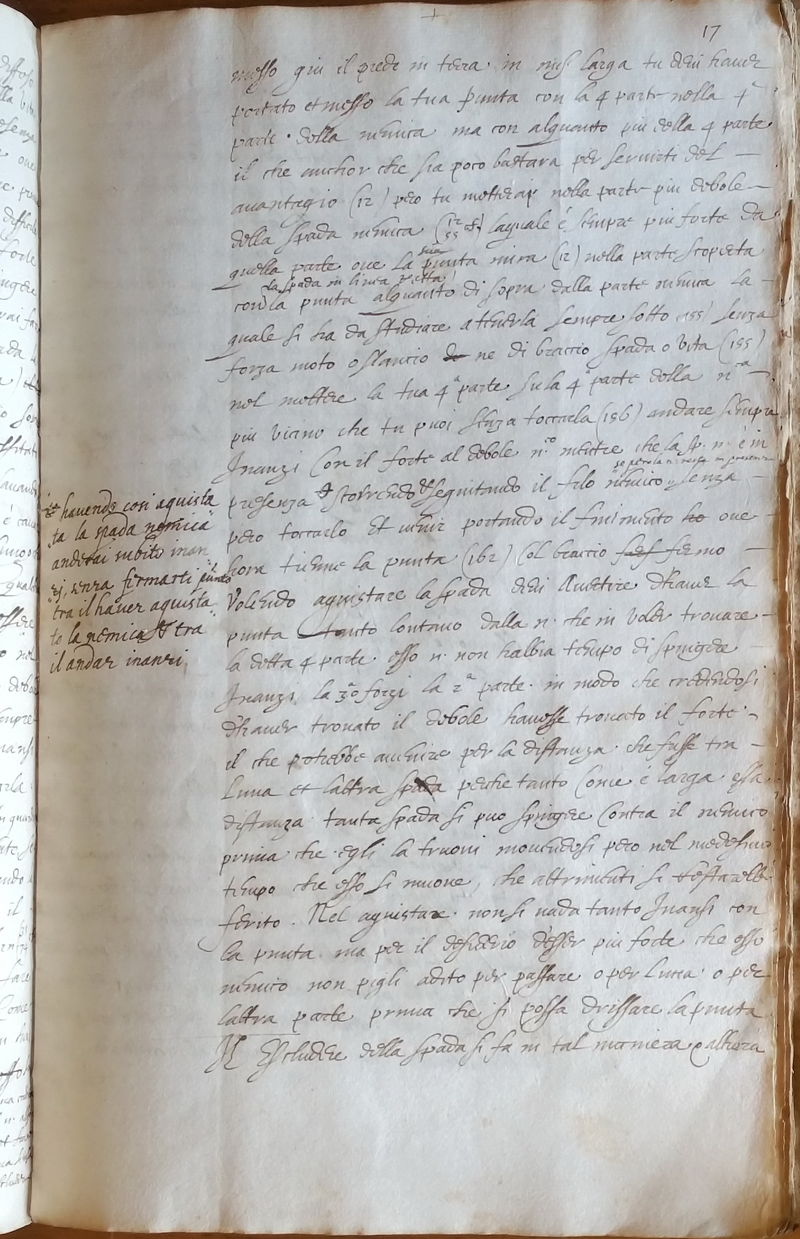 17
messo giu il piede in terra. in mis. larga tu devi haver
portato et messo la tua punta con la 4 parte nella 4
parte della nimica ma con alquanto piu della 4 parte
il che anchor che sia poco bastara per servirti del
avantagio (12) pero tu metterai nella parte piu debole
della spada nimica laquale é sempre piu forte da
quella parte ove la sua punta mira (12) nella parte scoperta
la spada in linea retta
con la punta alquanto di sopra dalla parte nimica la
quale si ha da studiare a tenerla sempre sotto (155) senza
forza moto o slancio ne di braccio spada o vita (155)
nel mettere la tua 4ª parte su la 4ª parte della n.ca
piu vicino che tu puoi senza toccarla (156) andare sempre
Inanzi Con il forte al debole n.co mentre che la sp. n. è in
presenza scorrendo et seguitando il filo nimico senza
pero toccarlo Et venir portando il finimento ove
hora tienne la punta (162) Col braccio fermo
havendo cosi aquista
ta la spada nemica
anderai subito inan
zi, senza fermarti punto
tra il haver aquista
to la nemica et tra
il andar inanzi
Volendo aquistare la spada devi Avertire D'haver la
punta tanto lontano dalla n. che in voler trovare
la detta 4 parte. esso n. non habbia tempo di spingere
Inanzi la 3ª o forzi la 2ª parte. in modo che credendosi
d'haver trovato il debole havesse trovato il forte.
il che potrebbe avenire per la distanza che fusse tra
l'una et l'altra spada perche tanto Come é larga essa
distanza tanta spada si puo spingere Contra il nimico
prima che egli la truovi movendosi pero nel medesimo
tempo che esso si muove, che altrimenti si restarebbe
ferito. Nel aquistare non si vada tanto Inansi con
la punta. ma per il desiderio d'esser piu forte che esso
nimico non pigli adito per passare o per l'una o per
l'altra parte prima che si possa drissare la punta
Il Escludere della spada si fa in tal maniera